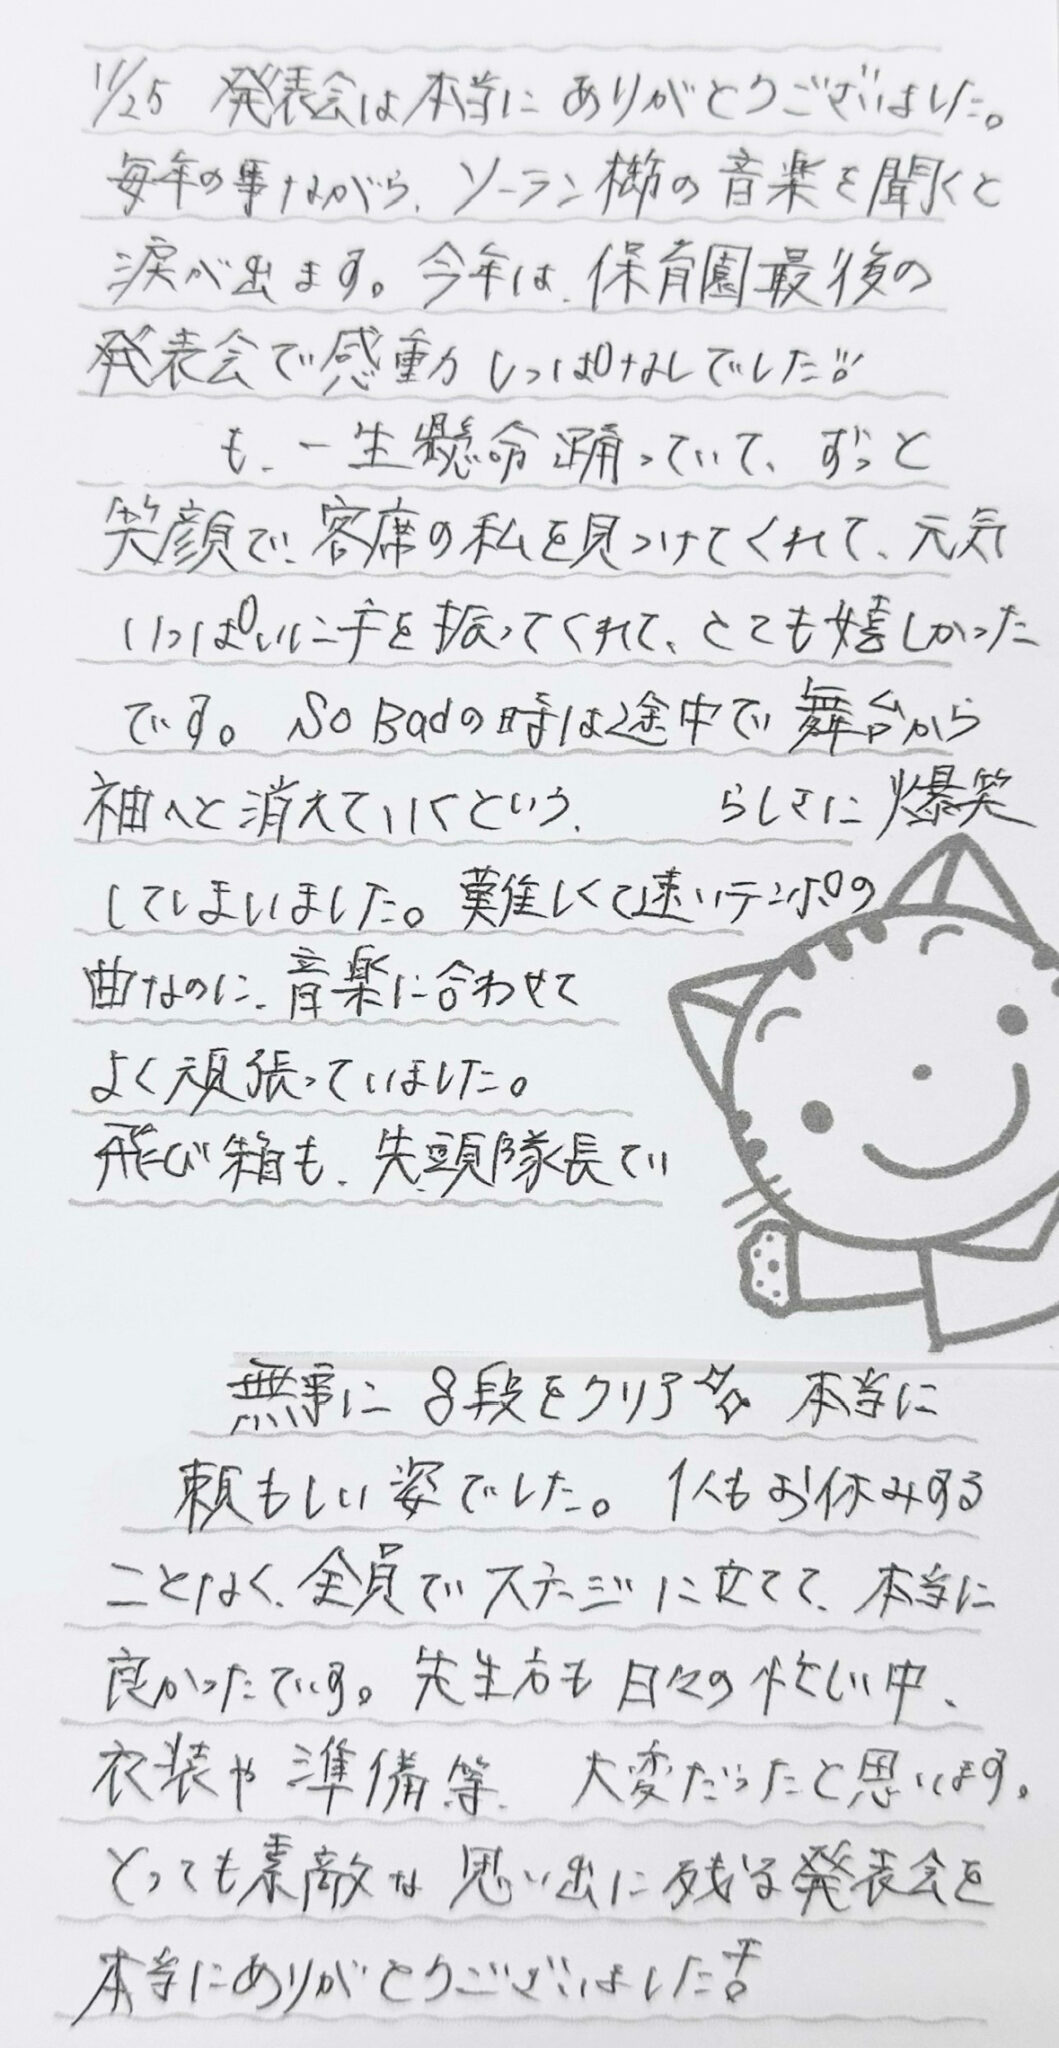 11/25 発表会は本当にありがとうございました。
毎年の事ながら、ソーラン節の音楽を聞くと
涙が出ます。今年は、保育園最後の
発表会で感動しっぱなしでした!!
も、一生懸命踊っていて、ずっと
笑顔で、客席の私を見つけてくれて、元気
いっぱいに手を振ってくれて、とても嬉しかった
です。So Badの時は途中で舞台から
袖へと消えていくという、 らしさに爆笑
してしまいました。難しくて速いテンポの
曲なのに、音楽に合わせて
よく頑張っていました。
飛び箱も、先頭隊長で
無事に8段をクリア✨ 本当に
頼もしい姿でした。1人もお休みする
ことなく、全員でステージに立てて、本当に
良かったです。先生方も日々の忙しい中、
衣装や準備等、大変だったと思います。
とっても素敵な思い出に残る発表会を
本当にありがとうございました!